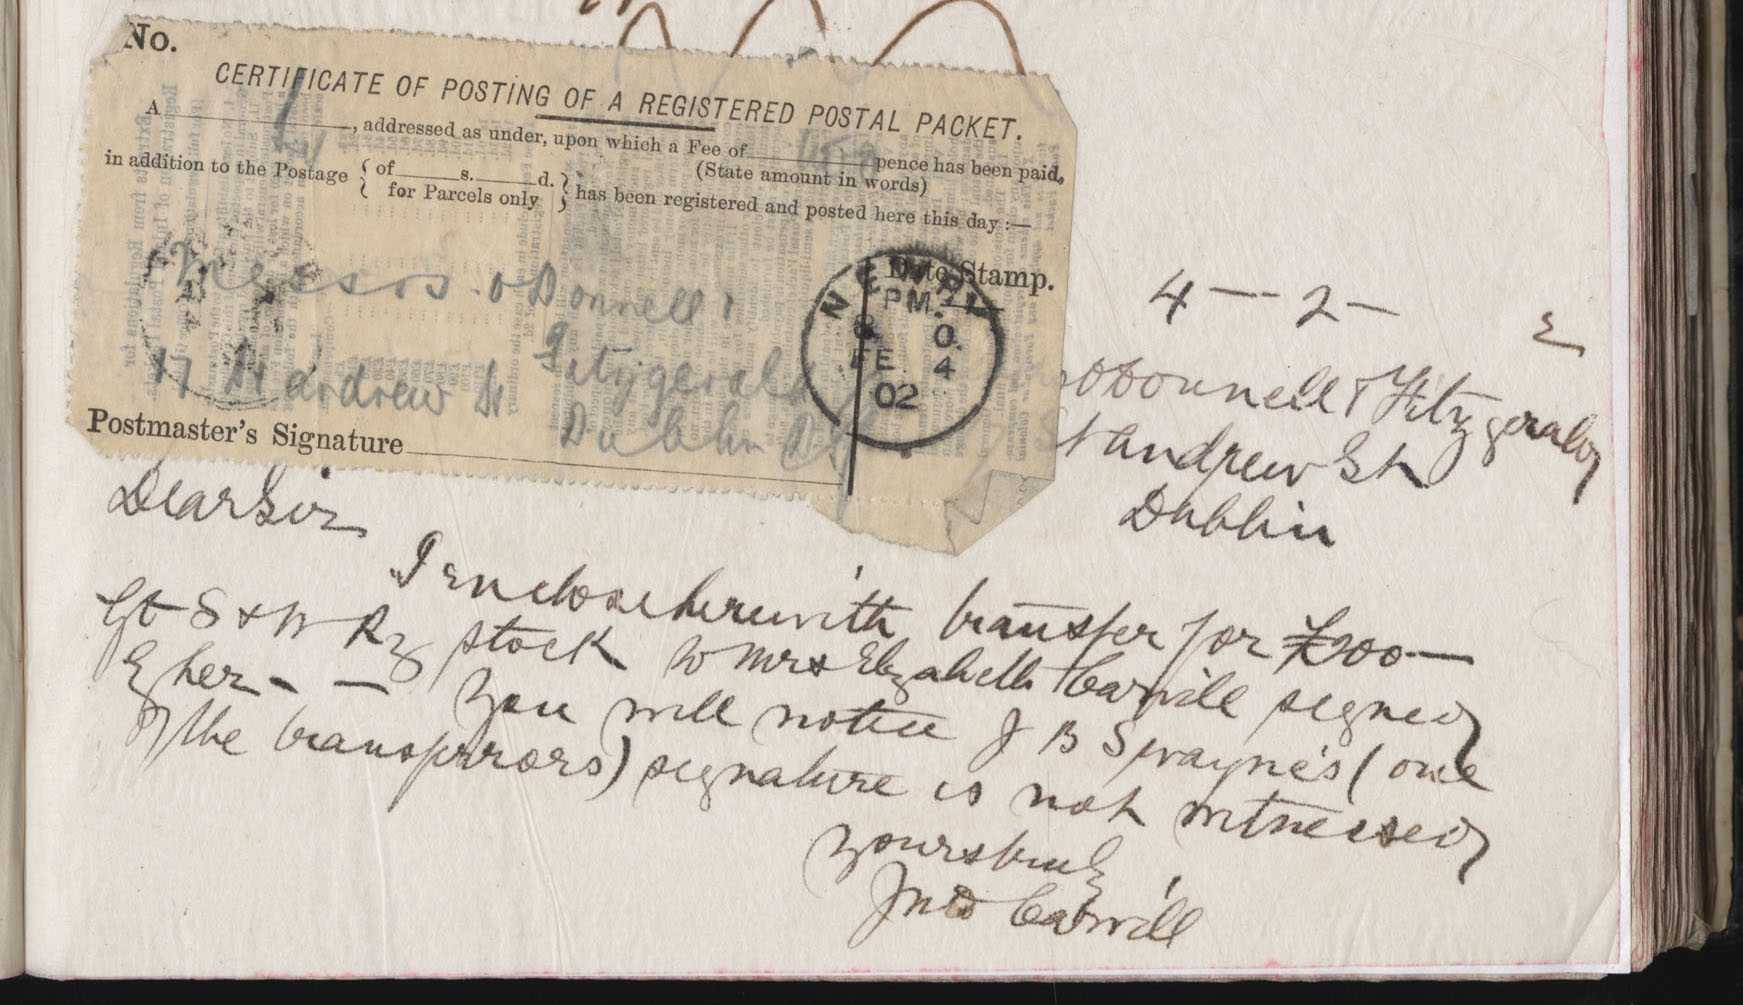 No.
CERTIFICATE OF POSTING OF A REGISTERED POSTAL PACKET.
A , addressed as under, upon which a Fee of pence has been paid,
(State amount in words)
in addition to the Postage { of s. d. } has been registered and posted here this day :—
for Parcels only
Date Stamp.
NEWRY
PM.
8. 0.
FE 4
02
Messrs. O Donnell &
Fitzgerald
17 St Andrew St
Dublin
Postmaster's Signature
4 — 2 — 2
O Donnell & Fitzgerald
St Andrew St
Dublin
Dear Sir
I enclose herewith transfer for £200 —
Gt S & W Ry stock to Mrs Elizabeth Carvill signed
by her - — You will notice J B Swayne's (one
of the transferrors) signature is not witnessed
Yours truly
Jno Carvill